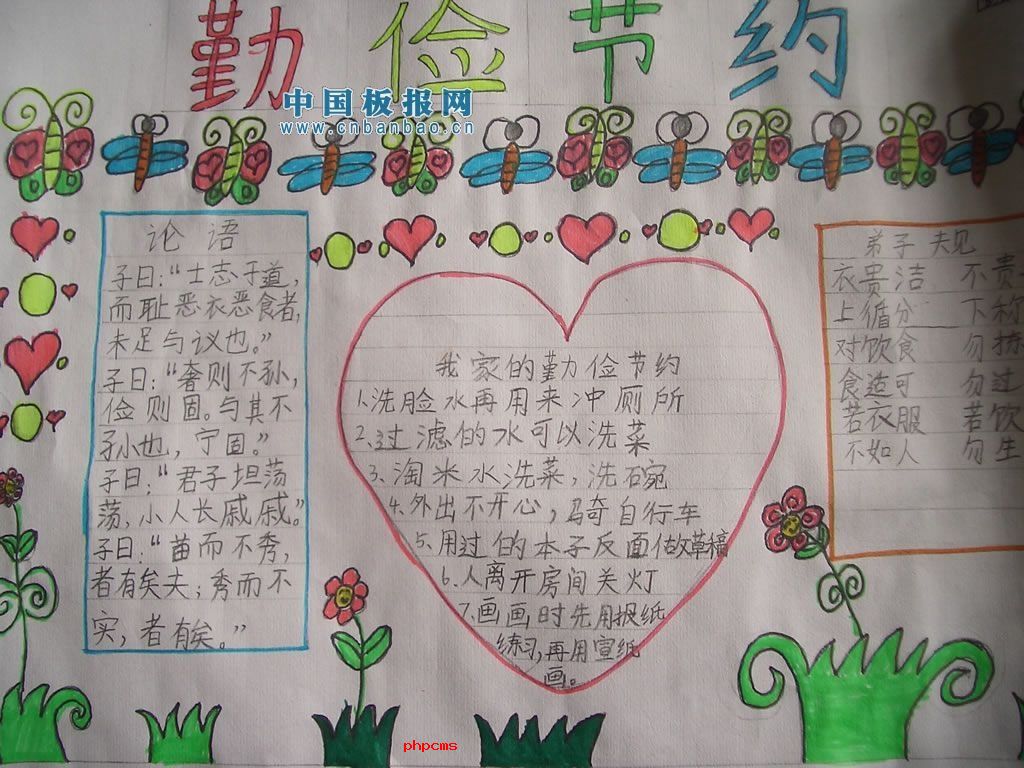 勤俭节约
中国板报网
www.cnbanbao.cn
论语
子曰:“士志于道,
而耻恶衣恶食者,
未足与议也。”
子曰:“奢则不孙,
俭则固。与其不
孙也,宁固。”
子曰:“君子坦荡
荡,小人长戚戚。”
子曰:“苗而不秀,
者有矣夫;秀而不
实,者有矣。”
我家的勤俭节约
1.洗脸水再用来冲厕所
2.过滤的水可以洗菜
3.淘米水洗菜,洗碗
4.外出不开心,骑自行车
5.用过的本子反面做草稿
6.人离开房间关灯
7.画画时先用报纸
练习,再用宣纸
画。
弟子 夫见
衣贵洁 不贵
上循分 下称
对饮食 勿拣
食适可 勿过
若衣服 若饮
不如人 勿生
phpcms